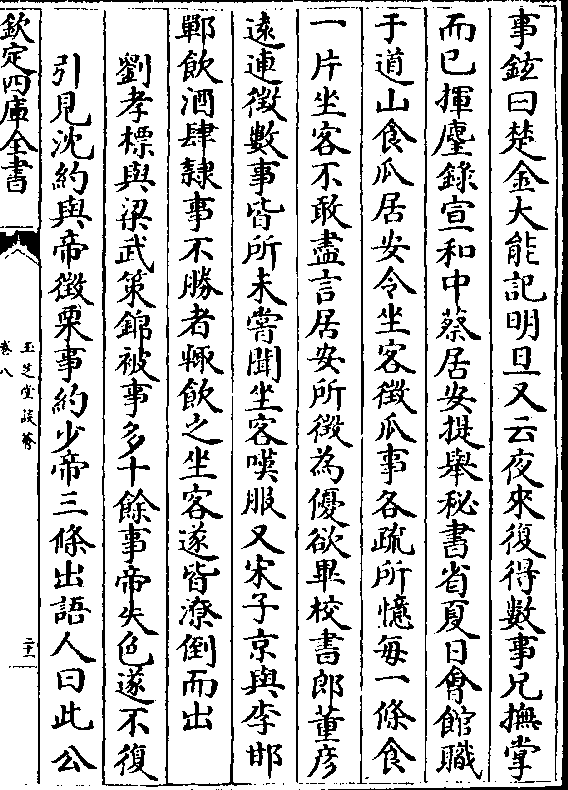 事鉉曰楚金大能記明旦又云夜來復得數事兄撫掌
而已揮麈錄宣和中蔡居安提舉秘書省夏日會館職
于道山食瓜居安令坐客徵瓜事各疏所憶每一條食
一片坐客不敢盡言居安所徵為優欲畢校書郎董彦
遠連徵數事皆所未嘗聞坐客嘆服又宋子京與李邯
鄲飲酒肆隸事不勝者輒飲之坐客遂皆潦倒而出
劉孝標與梁武策錦被事多十餘事帝失色遂不復
引見沈約與帝徵栗事約少帝三條出語人曰此公
欽定四庫全書
玉芝堂談薈
卷八
二十一